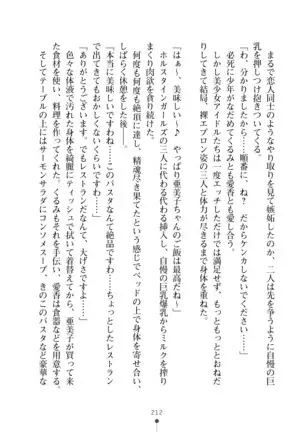 まるで恋人同士のようなやり取りを見て嫉妬したのか、二人は先を争うように自慢の巨
乳を押しつけ抱きついてくる。
「わ、分かりましたから……順番に、ね？　だからケンカしないでください……」
必死に少年が宥めてくるみも愛香も愛し合う。
だが、美少女アイドルたちは一度エッチしただけでは満足せず、もっともっととおねだ
りしてきて結局、裸エプロン姿の三人と体力が尽きるまで身体を重ねた。
「はぁ～、美味しい～♪　やっぱり亜美子ちゃんのご飯は最高だね～」
ホルスタインガールズの三人に代わる代わる挿入し、自慢の巨乳爆乳からミルクを搾り
まくり肉欲を貪り続けた。
何度も何度も絶頂に達し、精魂尽き果てたという感じでベッドの上で身体を寄せ合い、
しばらく休憩をしていたのだが……。
「本当に美味しいですわね……このパスタなんて絶品ですわ……ちょっとしたレストラン
で出てきてもおかしくないくらい……」
「ありがとうございます。でもレストランだなんて、大げさですよ……」
色々な体液で汚れた身体を綺麗にティッシュで拭いて着替えてから、亜美子が買って来
た食材を使い、料理を作った。くるみもそれを手伝い、愛香は食器などを用意する。
そしてテーブルの上にはサーモンサラダにコンソメスープ、きのこのパスタなど豪華な
212